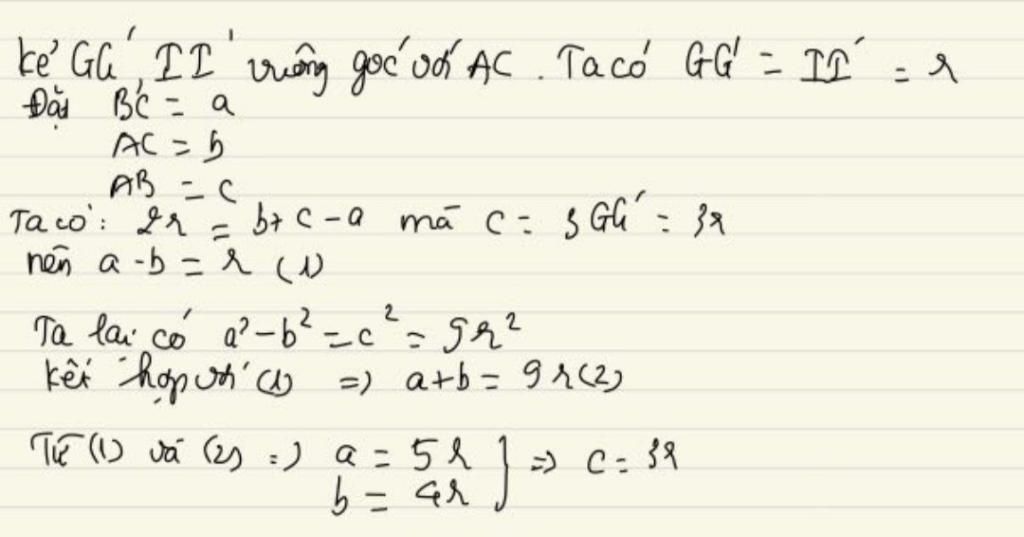 kẻ GG', II' vuông góc với AC. Ta có GG' = II' = r
Đặt BC = a
AC = b
AB = c
Ta có: 2r = b + c - a mà c = 3GG' = 3r
nên a - b = r (1)
Ta lại có a² - b² = c² = 9r²
kết hợp với (1) => a + b = 9r (2)
Từ (1) và (2) => a = 5r } => c = 3r
b = 4r